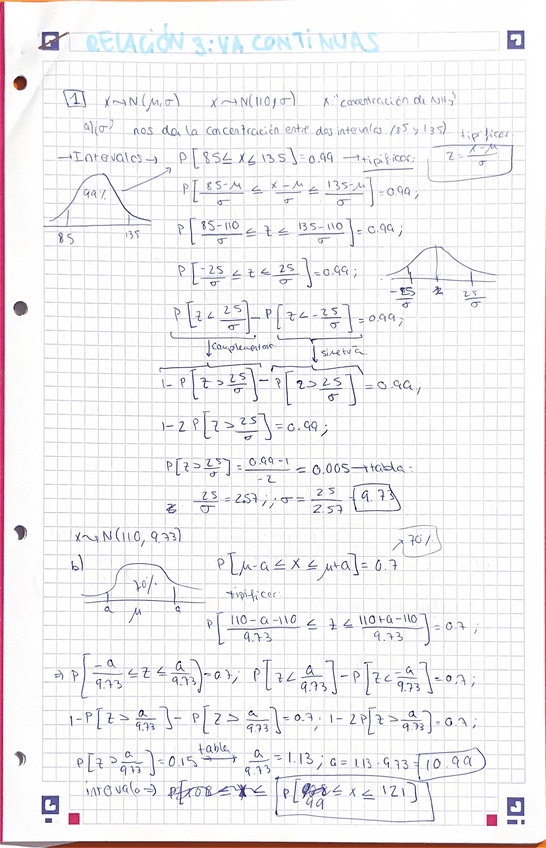 RELACIÓN 3: VA CONTINUAS
1 x~N(μ,σ) x~N(110,σ) x:"concentración de NH3"
a) ¿σ? nos da la concentración entre dos intervalos (85 y 135)
tipificar
z = x-μ/σ
→Intervalos→ P[85≤x≤135]=0.99 →tipificar:
99%
85 135
P[85-μ/σ ≤ x-μ/σ ≤ 135-μ/σ]=0.99;
P[85-110/σ ≤ z ≤ 135-110/σ]=0.99;
P[-25/σ ≤ z ≤ 25/σ]=0.99;
-25/σ 25/σ
P[z<25/σ]-P[z<-25/σ]=0.99;
↓complementar ↓simetría
1-P[z>25/σ]-P[z>25/σ]=0.99;
1-2P[z>25/σ]=0.99;
P[z>25/σ]=0.99-1/-2=0.005→tabla:
25/σ=2.57;; σ=25/2.57=9.73
x~N(110,9.73)
b) 70% a μ a
P[μ-a≤x≤μ+a]=0.7 → 70%
tipificar:
P[110-a-110/9.73 ≤ z ≤ 110+a-110/9.73]=0.7;
⇒P[-a/9.73≤z≤a/9.73]=0.7; P[z<a/9.73]-P[z<-a/9.73]=0.7;
1-P[z>a/9.73]-P[z>a/9.73]=0.7; 1-2P[z>a/9.73]=0.7;
P[z>a/9.73]=0.15 tabla→ a/9.73=1.13; a=1.13·9.73=10.99
intervalo⇒ P[99≤x≤121]